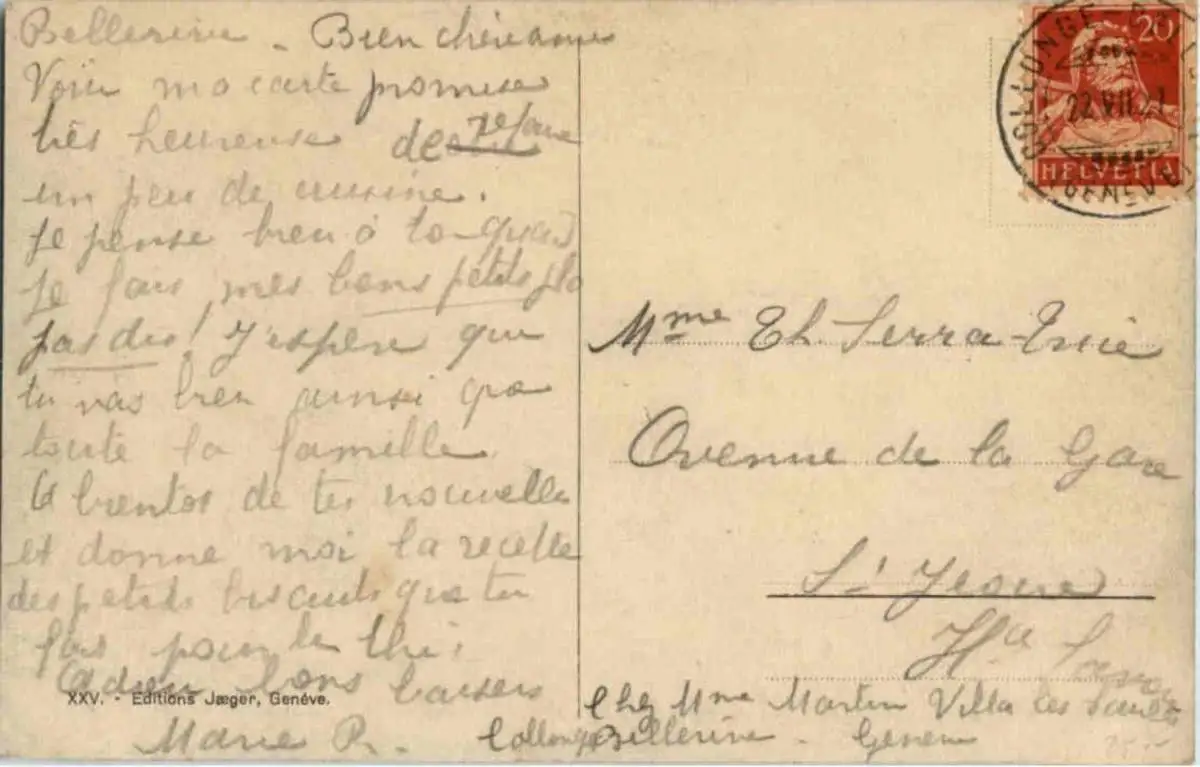 Bellerive - Bien chère amie
Voici ma carte promise
très heureuse de refaire
un peu de cuisine.
Je pense bien à toi quand
je fais mes bons petits pla
J'espère que
tu vas bien ainsi que
toute la famille
A bientot de tes nouvelles
et donne moi la recette
des petits biscuits que tu
fais pour le thé.
Adieu bons baisers
Marie R.
XXV. - Editions Jæger, Genève.
20
COLLONGE-BELLERIVE
22.VII.21
HELVETIA
(GENÈVE)
Mme Th. Serra-
Avenue de la Gare
St
Hte Savoie
Chez Mme Martin Villa les
Collonge Bellerive - Genève